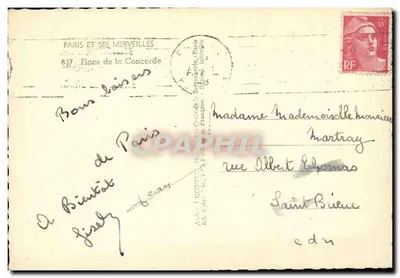 PARIS ET SES MERVEILLES
837 Place de la Concorde
Bons baisers
de Paris
A Bientôt
Gisely
Jean
RF
Madame Mademoiselle
Martray
rue Albert Thomas
Saint Brieuc
cdn
CPAPHIL.com